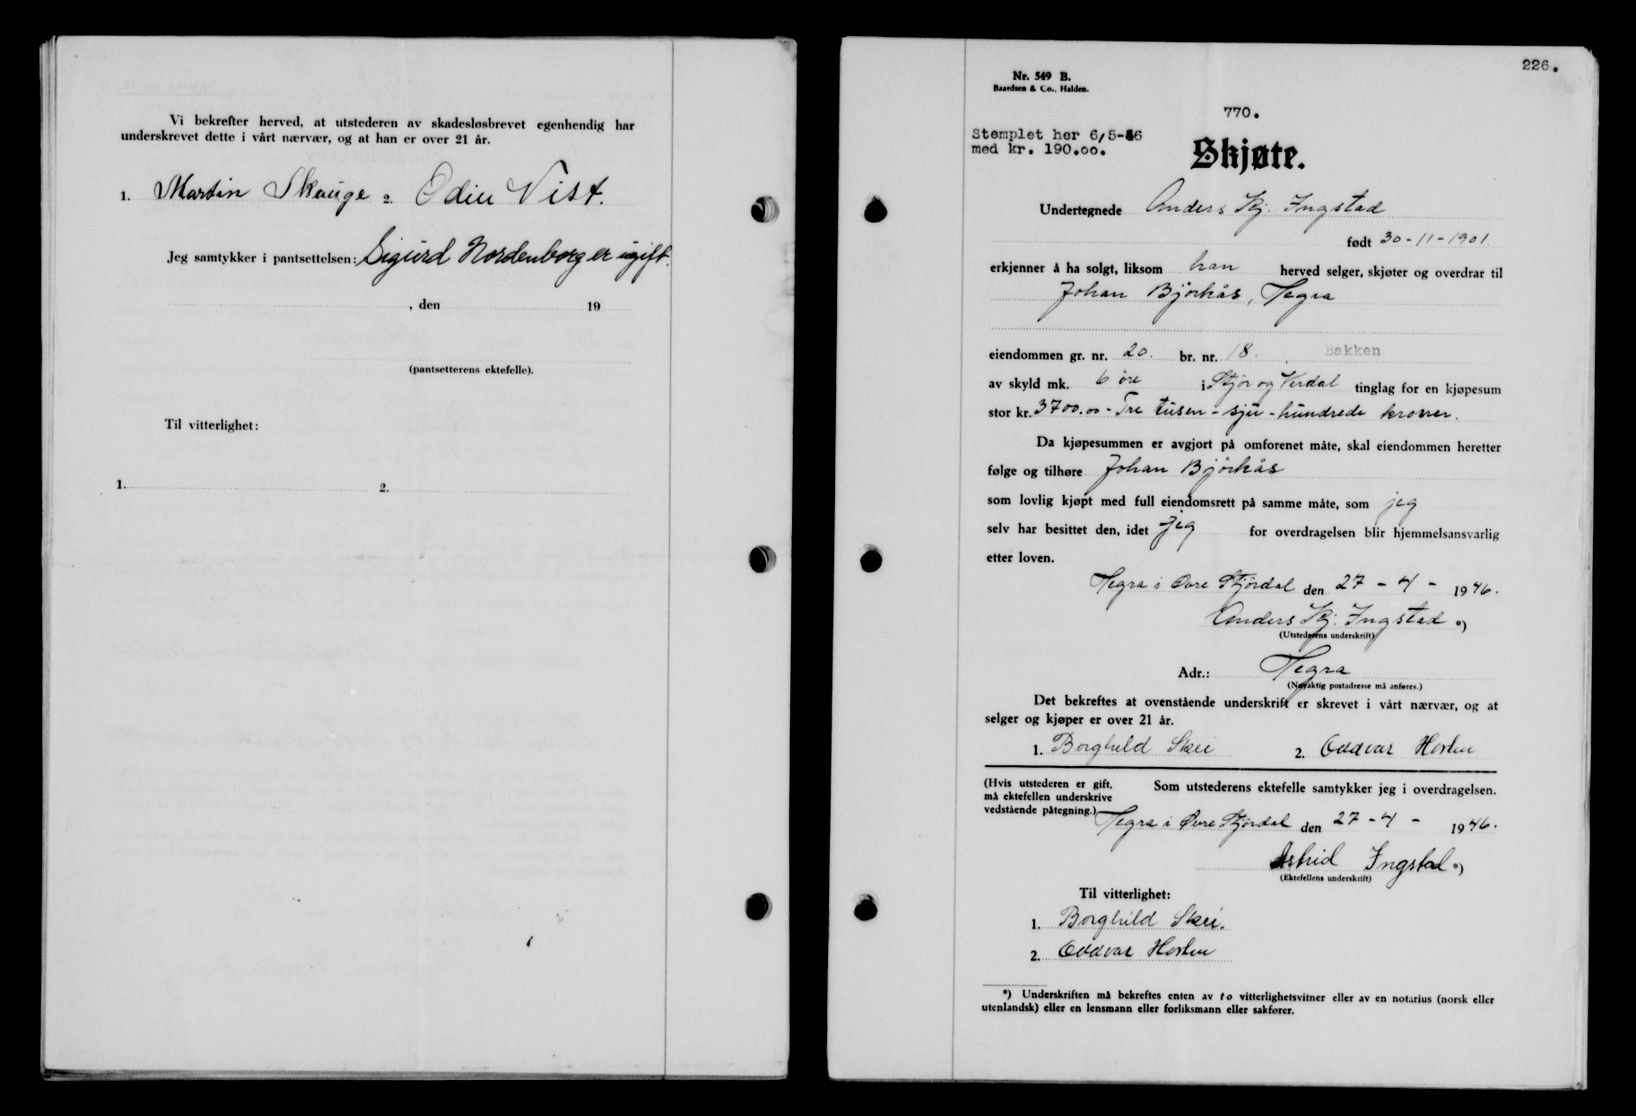 Vi bekrefter herved, at utstederen av skadesløsbrevet egenhendig har
underskrevet dette i vårt nærvær, og at han er over 21 år.
1. Martin Skauge 2. Odin Vist.
Jeg samtykker i pantsettelsen: Sigurd Nordenborg er ugift.
, den 19
(pantsetterens ektefelle).
Til vitterlighet:
1. 2.
226.
Nr. 549 B.
Baardsen & Co., Halden.
770.
Stemplet her 6/5-46
med kr. 190.00.
Skjøte.
Undertegnede Anders Kj. Ingstad
født 30-11-1901.
erkjenner å ha solgt, liksom han herved selger, skjøter og overdrar til
Johan Bjørkås, Hegra
eiendommen gr. nr. 20. br. nr. 18. , Bakken
av skyld mk. 6 øre i Stjør og Verdal tinglag for en kjøpesum
stor kr. 3700.00 - Tre tusen - sju - hundrede kroner.
Da kjøpesummen er avgjort på omforenet måte, skal eiendommen heretter
følge og tilhøre Johan Bjørkås
som lovlig kjøpt med full eiendomsrett på samme måte, som jeg
selv har besittet den, idet jeg for overdragelsen blir hjemmelsansvarlig
etter loven.
Hegra i Øvre Stjørdal den 27 - 4 - 1946.
Anders Kj. Ingstad *)
(Utstederens underskrift)
Adr.: Hegra
(Nøyaktig postadresse må anføres.)
Det bekreftes at ovenstående underskrift er skrevet i vårt nærvær, og at
selger og kjøper er over 21 år.
1. Borghild Skei 2. Oddvar Horten
(Hvis utstederen er gift,
må ektefellen underskrive
vedstående påtegning.)
Som utstederens ektefelle samtykker jeg i overdragelsen.
Hegra i Øvre Stjørdal den 27 - 4 - 1946.
Astrid Ingstad *)
(Ektefellens underskrift)
Til vitterlighet:
1. Borghild Skei.
2. Oddvar Horten
*) Underskriften må bekreftes enten av to vitterlighetsvitner eller av en notarius (norsk eller
utenlandsk) eller en lensmann eller forliksmann eller sakfører.